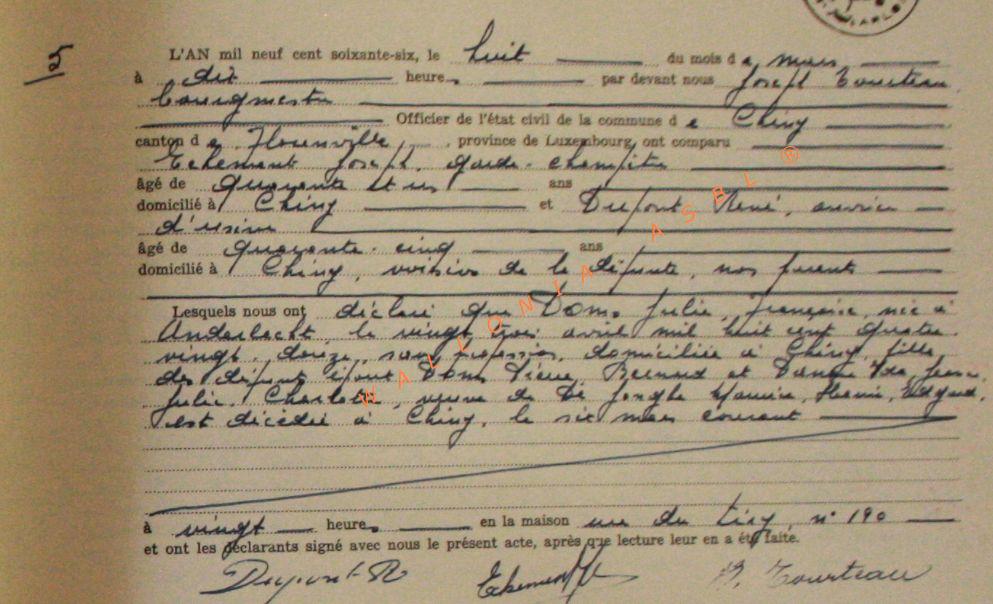 5
L'AN mil neuf cent soixante-six, le huit du mois de mars
à dix heures par devant nous Joseph Tourteau
bourgmestre
Officier de l'état civil de la commune de Chiny
canton de Florenville, province de Luxembourg, ont comparu
Echement Joseph, garde-champêtre
âgé de quarante et un ans
domicilié à Chiny et Dupont René, ouvrier
d'usine
âgé de quarante-cinq ans
domicilié à Chiny, voisins de la défunte, non parents
Lesquels nous ont déclaré que Dom, Julie, Françoise, née à
Anderlecht, le vingt trois avril mil huit cent quatre
vingt douze, sans profession, domiciliée à Chiny, fille
des défunts époux Dom Pierre, Bernard et
Julie, Charlotte, veuve de De Jonghe Maurice, Edgard,
est décédée à Chiny, le six mars courant
à vingt heures en la maison rue du n° 190
et ont les déclarants signé avec nous le présent acte, après que lecture leur en a été faite.
Dupont R Echement J Tourteau
WALLONIA ASBL ®